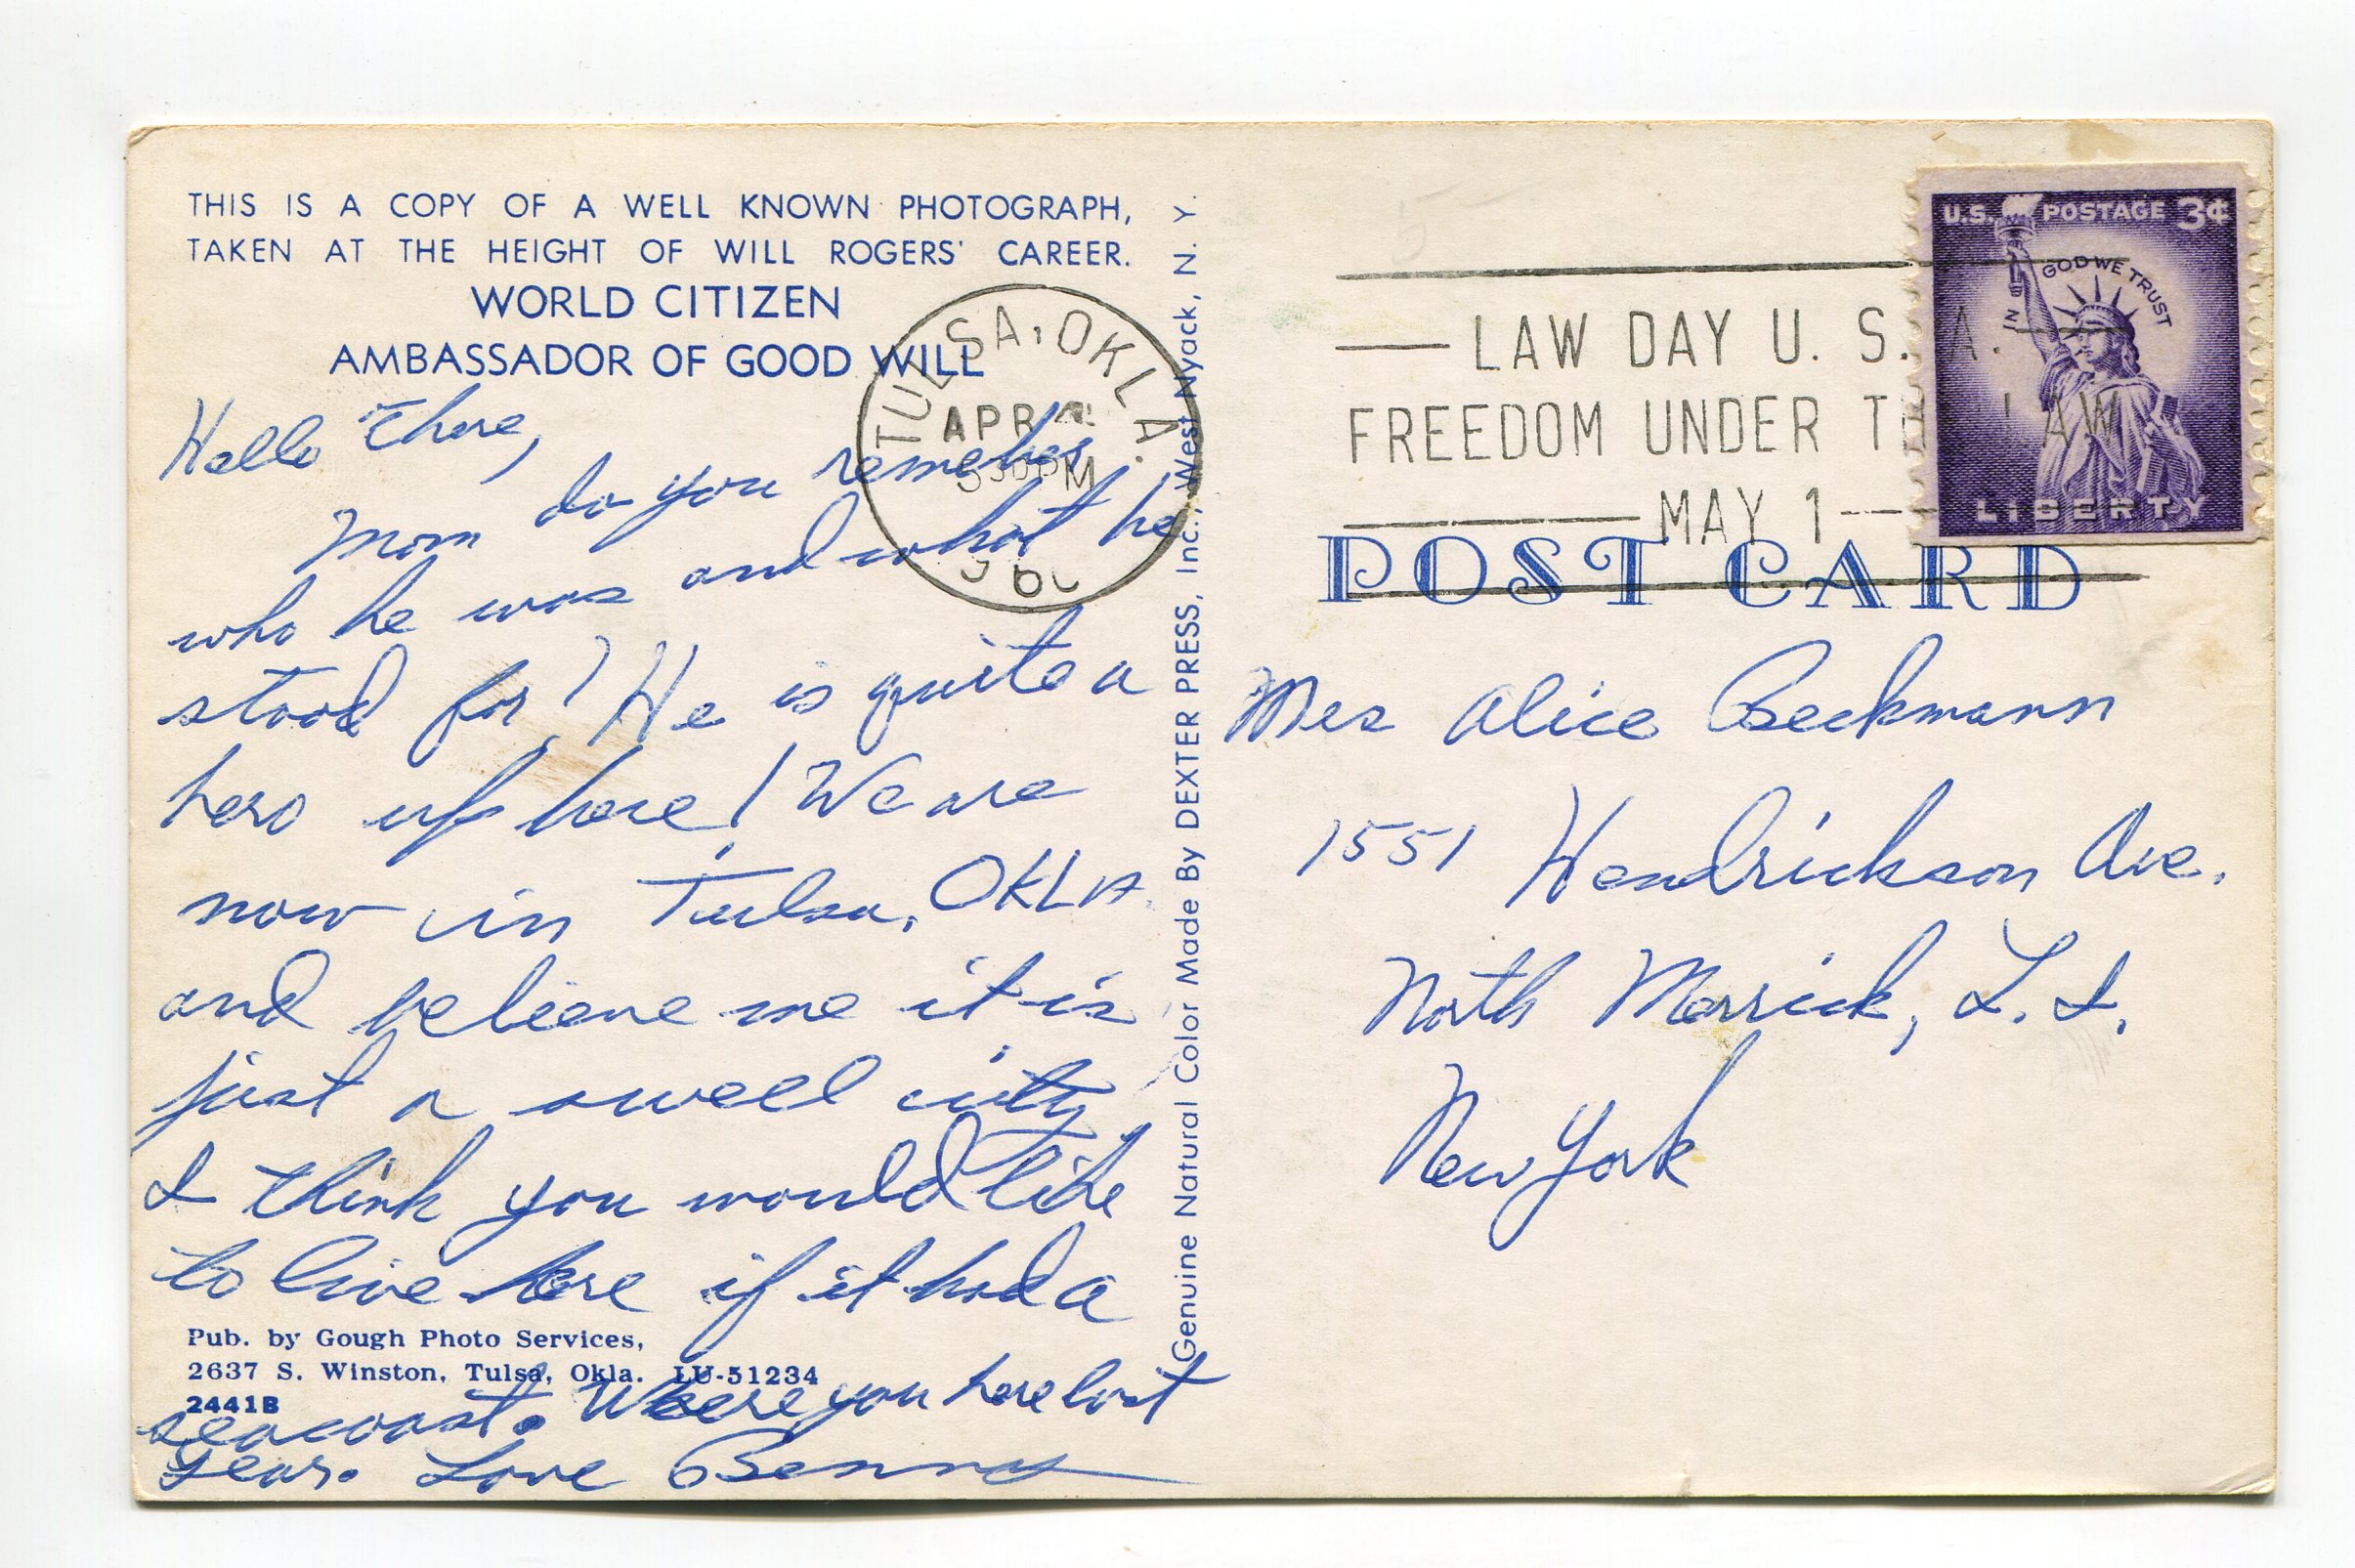 THIS IS A COPY OF A WELL KNOWN PHOTOGRAPH,
TAKEN AT THE HEIGHT OF WILL ROGERS' CAREER.
WORLD CITIZEN
AMBASSADOR OF GOOD WILL
Hello There,
Mom do you remeber
who he was and what he
stood for? He is quite a
hero up here! We are
now in Tulsa, OKLA.
and believe me it is
just a swell citty
I think you would like
to live here if it had a
seacoast. Where you here last
year. Love Benny
Pub. by Gough Photo Services,
2637 S. Winston, Tulsa, Okla. LU-51234
2441B
Genuine Natural Color Made By DEXTER PRESS, Inc., West Nyack, N. Y.
TULSA, OKLA.
APR
530PM
LAW DAY U. S. A.
FREEDOM UNDER THE LAW
MAY 1
U.S. POSTAGE 3¢
IN GOD WE TRUST
LIBERTY
POST CARD
Mrs Alice Beckmann
1551 Hendrickson Ave.
North Merrick, L. I.
New York